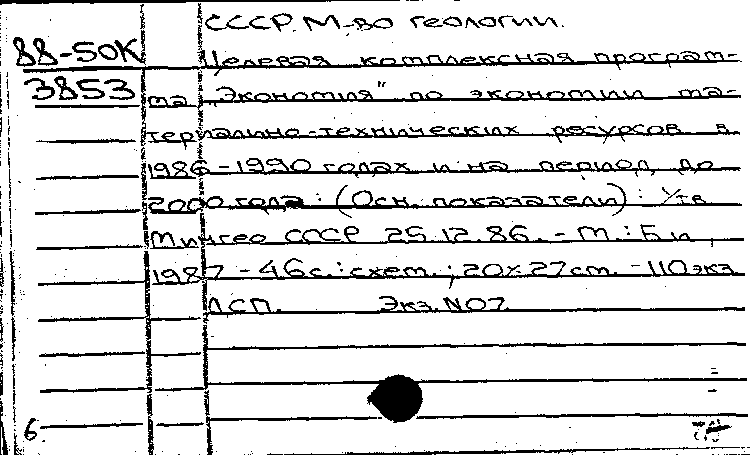 СССР. М-во геологии.
88-50К
3853
Целевая комплексная програм-
ма "Экономия" по экономии ма-
териально-технических ресурсов в
1986-1990 годах и на период до
2000 года: (Осн. показатели): Утв.
Мингео СССР 25.12.86. - М.: Б.и.,
1987 - 46с.: схем.; 20х27см. - 110экз
ДСП. Экз. №07
6.